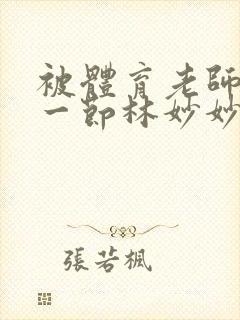 被體育老師
一節林妙妙
張若楓